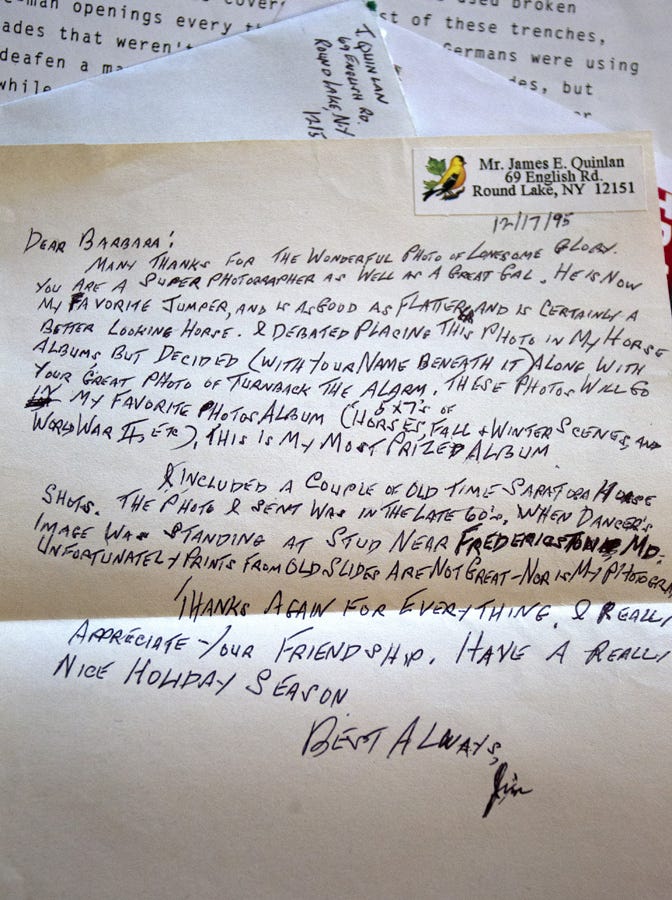 openings every
used broken
st of these trenches,
ades that weren't
Germans were using
deafen a ma
des, but
while
T. QUINLAN
69 ENGLISH RD.
ROUND LAKE, NY
12/5
Mr. James E. Quinlan
69 English Rd.
Round Lake, NY 12151
12/17/95
DEAR BARBARA:
MANY THANKS FOR THE WONDERFUL PHOTO OF LONESOME GLORY.
YOU ARE A SUPER PHOTOGRAPHER AS WELL AS A GREAT GAL. HE IS NOW
MY FAVORITE JUMPER, AND IS AS GOOD AS FLATTERER AND IS CERTAINLY A
BETTER LOOKING HORSE. I DEBATED PLACING THIS PHOTO IN MY HORSE
ALBUMS BUT DECIDED (WITH YOUR NAME BENEATH IT) ALONG WITH
YOUR GREAT PHOTO OF TURNBACK THE ALARM. THESE PHOTOS WILL GO
IN MY FAVORITE PHOTOS ALBUM (5X7'S OF HORSES, FALL & WINTER SCENES, AND
WORLD WAR II, ETC), THIS IS MY MOST PRIZED ALBUM.
I INCLUDED A COUPLE OF OLD TIME SARATOGA HORSE
SHOTS. THE PHOTO I SENT WAS IN THE LATE 60'S, WHEN DANCER'S
IMAGE WAS STANDING AT STUD NEAR FREDERICKSTOWN MD.
UNFORTUNATELY PRINTS FROM OLD SLIDES ARE NOT GREAT - NOR IS MY PHOTOGRA
THANKS AGAIN FOR EVERYTHING. I REALLY
APPRECIATE YOUR FRIENDSHIP. HAVE A REALLY
NICE HOLIDAY SEASON
BEST ALWAYS,
Jim